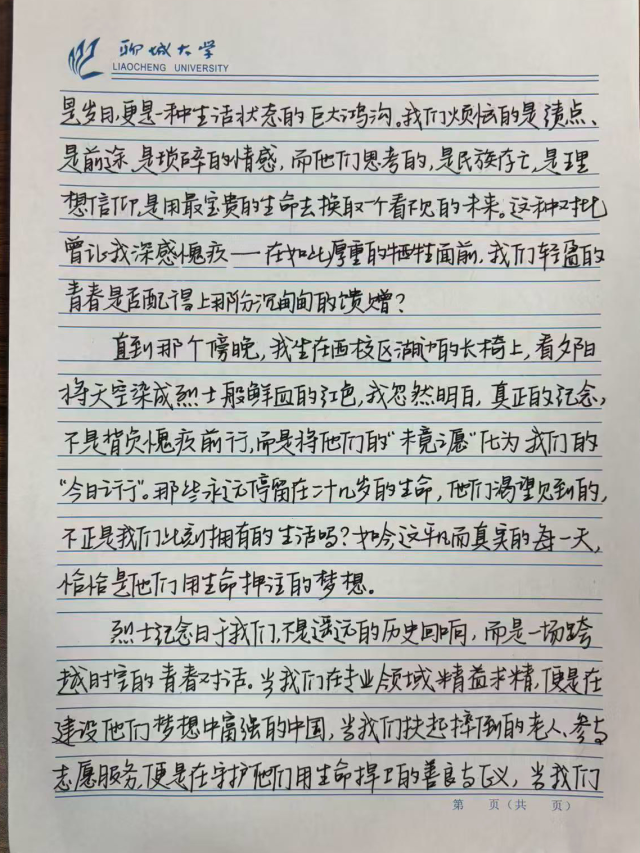 聊城大学
LIAOCHENG UNIVERSITY
是岁月,更是一种生活状态的巨大鸿沟。我们烦恼的是绩点、
是前途、是琐碎的情感,而他们思考的,是民族存亡,是理
想信仰,是用最宝贵的生命去换取一个看不见的未来。这种对比
曾让我深感愧疚——在如此厚重的牺牲面前,我们轻盈的
青春是否配得上那份沉甸甸的馈赠?
直到那个傍晚,我坐在西校区湖边的长椅上,看夕阳
将天空染成烈士般鲜血的红色,我忽然明白,真正的纪念,
不是背负愧疚前行,而是将他们的“未竟之愿”化为我们的
“今日之行”。那些永远停留在二十几岁的生命,他们渴望见到的,
不正是我们此刻拥有的生活吗?如今这平凡而真实的每一天,
恰恰是他们用生命押注的梦想。
烈士纪念日于我们,不是遥远的历史回响,而是一场跨
越时空的青春对话。当我们在专业领域精益求精,便是在
建设他们梦想中富强的中国,当我们扶起摔倒的老人、参与
志愿服务,便是在守护他们用生命捍卫的善良与正义,当我们
第 页(共 页)